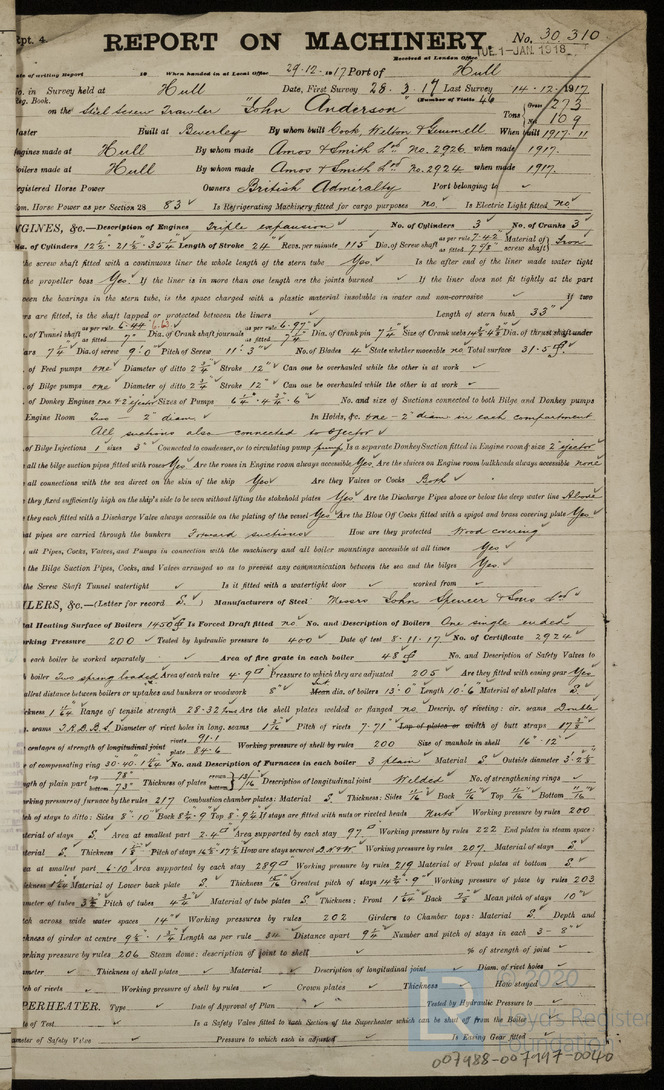 Rpt. 4.
REPORT ON MACHINERY. No. 30,310
Received at London Office TUE. 1-JAN. 1918
Date of writing Report 19 When handed in at Local Office 29.12.1917 Port of Hull
No. in Survey held at Hull Date, First Survey 28.3.17 Last Survey 14.12.1917
Reg. Book. (Number of Visits 46
on the Steel Screw Trawler "John Anderson" Tons Gross 273 Net 109
Master Built at Beverley By whom built Cook, Welton & Gemmell When built 1917.11
Engines made at Hull By whom made Amos & Smith Ltd No. 2926. when made 1917.
Boilers made at Hull By whom made Amos & Smith Ltd No. 2924 when made 1917.
Registered Horse Power Owners British Admiralty Port belonging to
Nom. Horse Power as per Section 28 83 Is Refrigerating Machinery fitted for cargo purposes no. Is Electric Light fitted no
ENGINES, &c.—Description of Engines Triple expansion No. of Cylinders 3 No. of Cranks 3
Dia. of Cylinders 12½. 21½. 35¼ Length of Stroke 24" Revs. per minute 115 Dia. of Screw shaft as per rule 7.42" as fitted 7⅞" Material of screw shaft Iron
the screw shaft fitted with a continuous liner the whole length of the stern tube Yes. Is the after end of the liner made water tight
the propeller boss Yes. If the liner is in more than one length are the joints burned If the liner does not fit tightly at the part
between the bearings in the stern tube, is the space charged with a plastic material insoluble in water and non-corrosive If two
liners are fitted, is the shaft lapped or protected between the liners Length of stern bush 33"
Dia. of Tunnel shaft as per rule 6.44 as fitted 7" Dia. of Crank shaft journals as per rule 6.97" as fitted 7¼" Dia. of Crank pin 7¼" Size of Crank webs Dia. of thrust shaft under
collars 7¼" Dia. of screw 9'.0 Pitch of Screw 11'.3" No. of Blades 4 State whether moveable no Total surface 31.5
No. of Feed pumps one Diameter of ditto 2¾" Stroke 12" Can one be overhauled while the other is at work
No. of Bilge pumps one Diameter of ditto 2¾" Stroke 12" Can one be overhauled while the other is at work
No. of Donkey Engines one & 2" ejector Sizes of Pumps 6¼" . 4¾" . 6" No. and size of Suctions connected to both Bilge and Donkey pumps
Engine Room Two — 2" diam. In Holds, &c. one – 2" diam in each compartment
All suctions also connected to ejector
No. of Bilge Injections 1 sizes 3" Connected to condenser, or to circulating pump pump Is a separate Donkey Suction fitted in Engine room & size 2" ejector
all the bilge suction pipes fitted with roses Yes Are the roses in Engine room always accessible Yes Are the sluices on Engine room bulkheads always accessible none
all connections with the sea direct on the skin of the ship Yes Are they Valves or Cocks Both
they fixed sufficiently high on the ship's side to be seen without lifting the stokehold plates Yes Are the Discharge Pipes above or below the deep water line Above
they each fitted with a Discharge Valve always accessible on the plating of the vessel Yes Are the Blow Off Cocks fitted with a spigot and brass covering plate Yes
What pipes are carried through the bunkers Forward suctions How are they protected Wood covering
all Pipes, Cocks, Valves, and Pumps in connection with the machinery and all boiler mountings accessible at all times Yes
the Bilge Suction Pipes, Cocks, and Valves arranged so as to prevent any communication between the sea and the bilges Yes.
the Screw Shaft Tunnel watertight Is it fitted with a watertight door worked from
BOILERS, &c.—(Letter for record S.) Manufacturers of Steel Messrs John Spencer & Sons Ltd
Total Heating Surface of Boilers 1450 Is Forced Draft fitted no No. and Description of Boilers One single ended
Working Pressure 200 Tested by hydraulic pressure to 400 Date of test 8.11.17 No. of Certificate 2924
each boiler be worked separately Area of fire grate in each boiler 48 No. and Description of Safety Valves to
each boiler Two spring loaded Area of each valve 4.9 Pressure to which they are adjusted 205 Are they fitted with easing gear Yes
Smallest distance between boilers or uptakes and bunkers or woodwork 8" Mean dia. of boilers 13'.0 Length 10'.6 Material of shell plates S.
Thickness Range of tensile strength 28.32 tons Are the shell plates welded or flanged no Descrip. of riveting: cir. seams Double
long. seams T.R.D.B.S. Diameter of rivet holes in long. seams 1 3/16" Pitch of rivets 7.71" Lap of plates or width of butt straps 17⅜"
Percentages of strength of longitudinal joint rivets 91.1 plate 84.6 Working pressure of shell by rules 200 Size of manhole in shell 16" . 12"
Size of compensating ring 30.40. No. and Description of Furnaces in each boiler 3 plain Material S. Outside diameter
Length of plain part top 78" bottom 73" Thickness of plates crown 13/16 bottom Description of longitudinal joint Welded No. of strengthening rings
Working pressure of furnace by the rules 217 Combustion chamber plates: Material S. Thickness: Sides 11/16 Back 11/16 Top 11/16 Bottom 11/16
Pitch of stays to ditto: Sides 8".10 Back 8¼.9 Top 8.9½ If stays are fitted with nuts or riveted heads Nuts Working pressure by rules 200
Material of stays S. Area at smallest part 2.4 Area supported by each stay 97 Working pressure by rules 222 End plates in steam space:
Material S. Thickness Pitch of stays How are stays secured D.N & W. Working pressure by rules 207. Material of stays S.
Area at smallest part 6.10 Area supported by each stay 289 Working pressure by rules 219 Material of Front plates at bottom S.
Thickness Material of Lower back plate S. Thickness Greatest pitch of stays Working pressure of plate by rules 203
Diameter of tubes 3½ Pitch of tubes 4¾" Material of tube plates S. Thickness: Front Back Mean pitch of stays 10"
Pitch across wide water spaces 14" Working pressures by rules 202 Girders to Chamber tops: Material S. Depth and
thickness of girder at centre 9½ . 1¾ Length as per rule 34 Distance apart 9¼ Number and pitch of stays in each 3 – 8"
Working pressure by rules 206 Steam dome: description of joint to shell % of strength of joint
Diameter Thickness of shell plates Material Description of longitudinal joint Diam. of rivet holes
Pitch of rivets Working pressure of shell by rules Crown plates Thickness How stayed
SUPERHEATER. Type Date of Approval of Plan Tested by Hydraulic Pressure to
Date of Test Is a Safety Valve fitted to each Section of the Superheater which can be shut off from the Boiler
Diameter of Safety Valve Pressure to which each is adjusted Is Easing Gear fitted
© 2020
Lloyd's Register
Foundation
007988-007997-0040